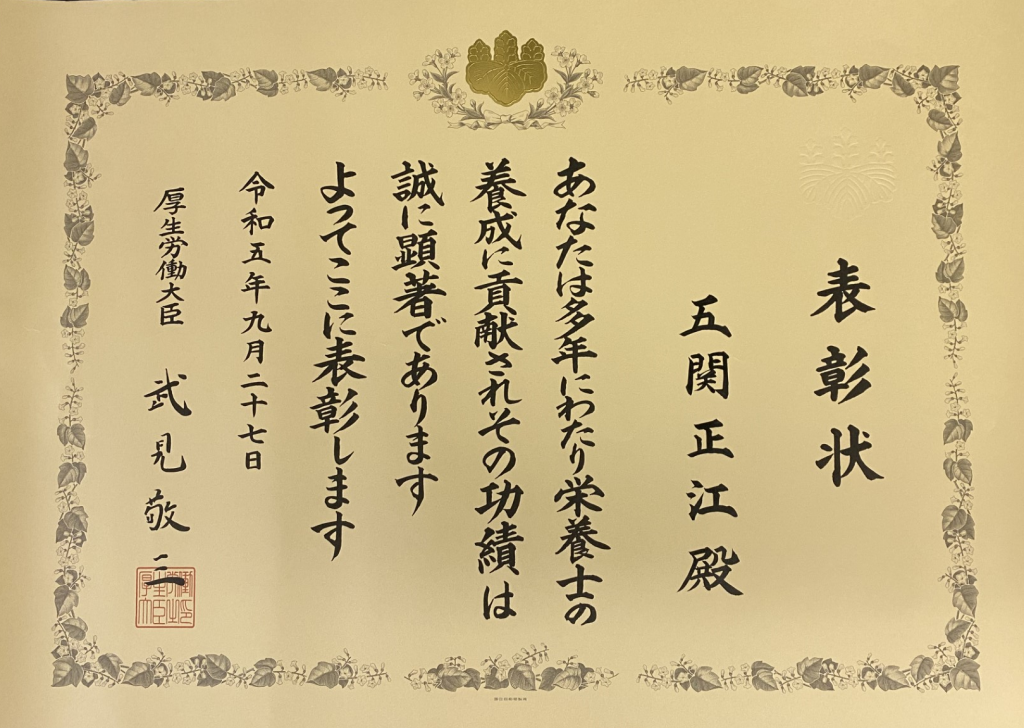 表彰状
五関正江殿
あなたは多年にわたり栄養士の
養成に貢献されその功績は
誠に顕著であります
よってここに表彰します
令和五年九月二十七日
厚生労働大臣 武見敬三
厚生労働大臣之印